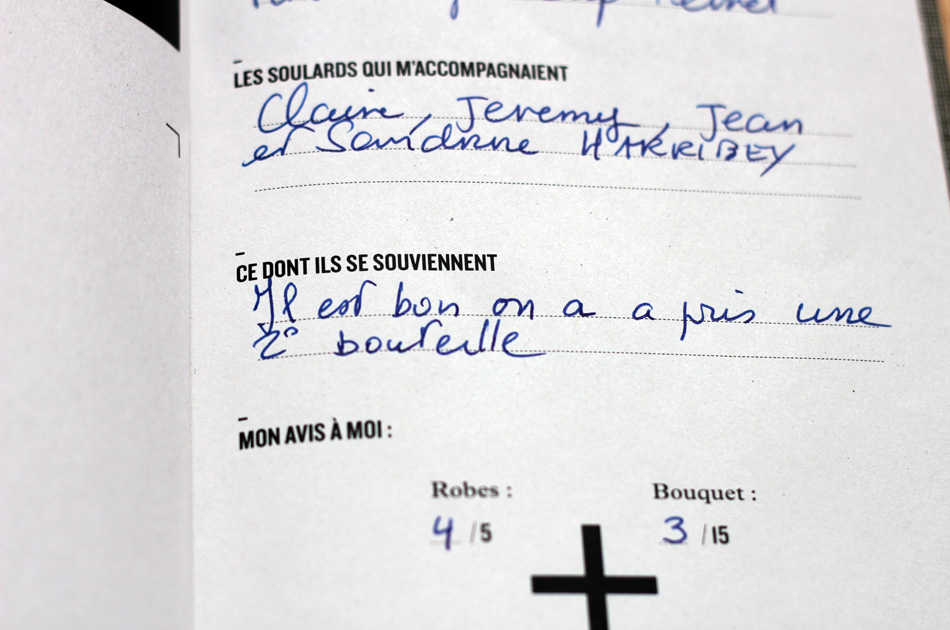 LES SOULARDS QUI M'ACCOMPAGNAIENT
Claire, Jeremy, Jean
et Sandrine HARRIBEY
CE DONT ILS SE SOUVIENNENT
Il est bon on a a pris une
2° bouteille
MON AVIS À MOI :
Robes : Bouquet :
4 /5 3 /15